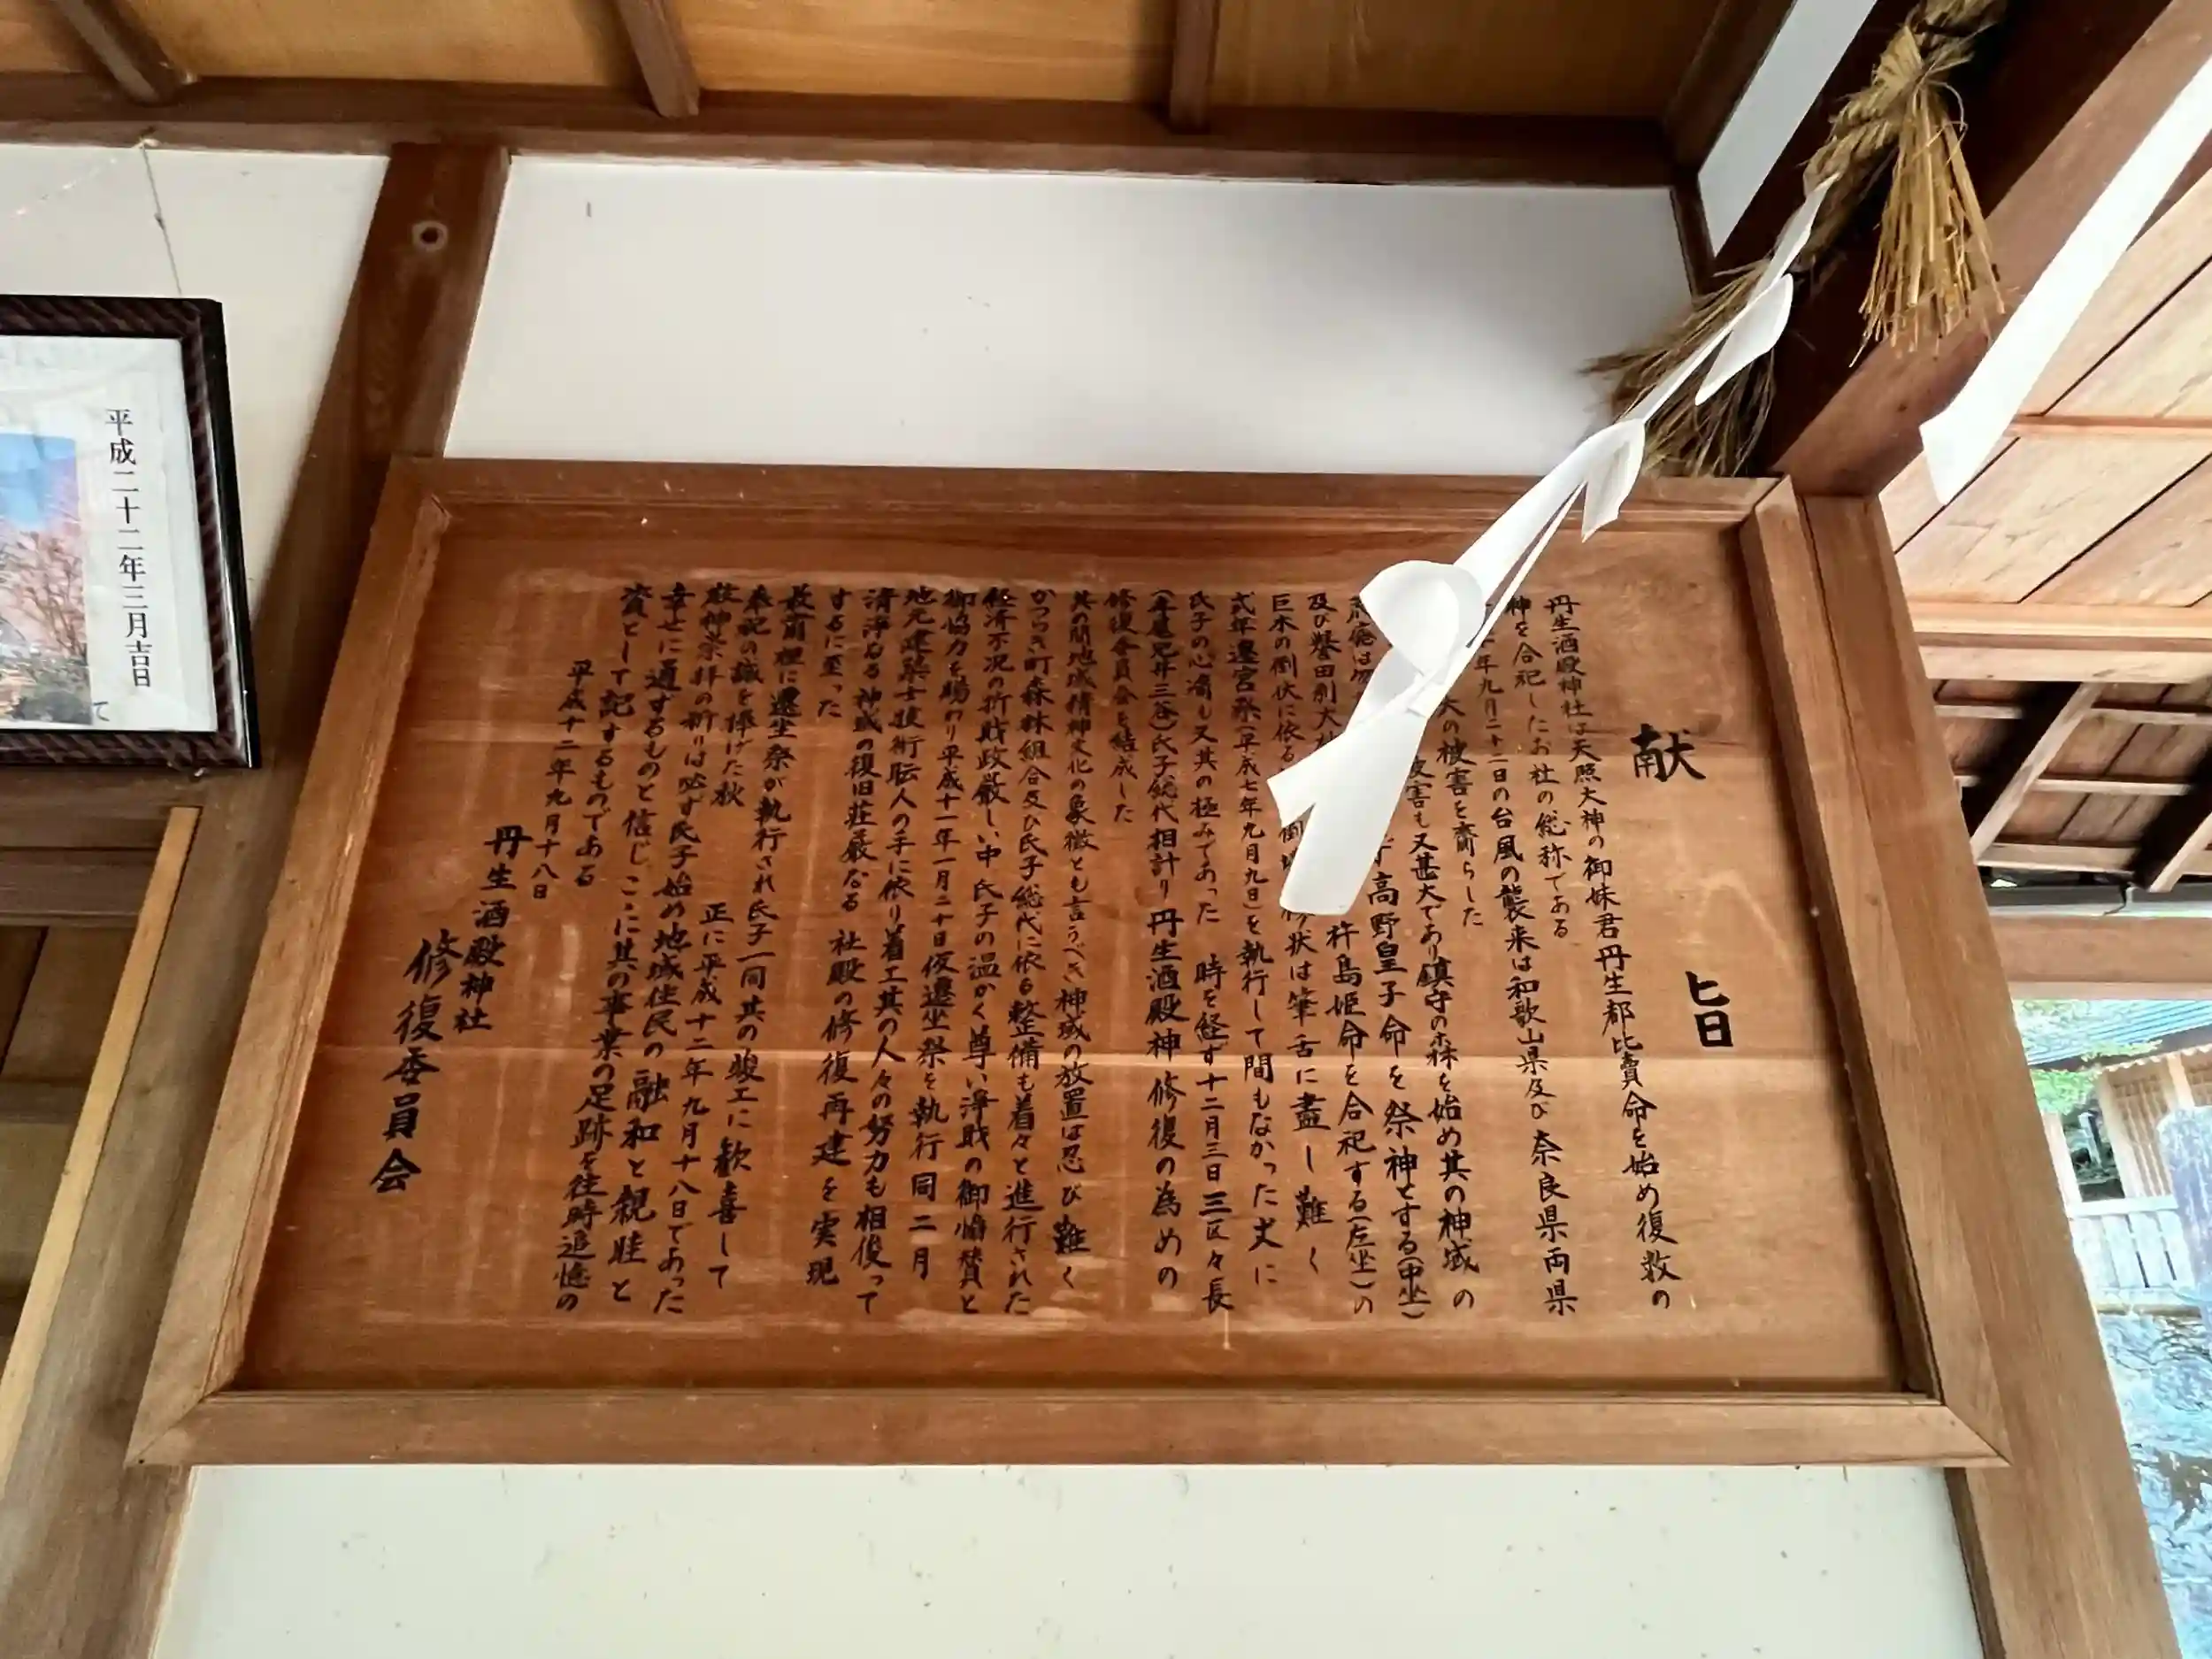 献 旨
丹生酒殿神社は天照大神の御妹君丹生都比賣命を始め復数の
神を合祀したお社の総称である
年九月二十二日の台風の襲来は和歌山県及び奈良県両県
大の被害を齎らした
被害も又甚大であり鎮守の森を始め其の神域の
高野皇子命を祭神とする(中坐)
及び誉田別大 杵島姫命を合祀する(左坐)の
巨木の倒伏に依る 状は筆舌に盡し難く
氏子の心痛も又其の極みであった 時を経ず十二月三日三区々長
式年遷宮祭(平成七年九月九日)を執行して間もなかった丈に
氏子総代相計り丹生酒殿神 修復の為めの
修復委員会を結成した
其の間地域精神文化の象徴とも言うべき神域の放置は忍び難く
かつらぎ町森林組合及び氏子総代に依る整備も着々と進行された
経済不況の折財政厳しい中 氏子の温かく尊い浄財の御協賛と
御協力を賜わり平成十一年一月二十日仮遷坐祭を執行同二月
地元建築士技術職人の手に依り着工其の人々の努力も相俊って
清浄なる神域の復旧荘厳なる 社殿の修復再建を実現
するに至った
最前裡に遷坐祭が執行され氏子一同其の竣工に歓喜して
奉祀の誠を捧げた秋 正に平成十二年九月十八日であった
敬神崇拝の祈りは必ず氏子始め地域住民の融和と親睦と
幸せに通ずるものと信じここに其の事業の足跡を往時追憶の
資として記するものである
平成十二年九月十八日
丹生酒殿神社
修復委員会
平成二十二年三月吉日
て